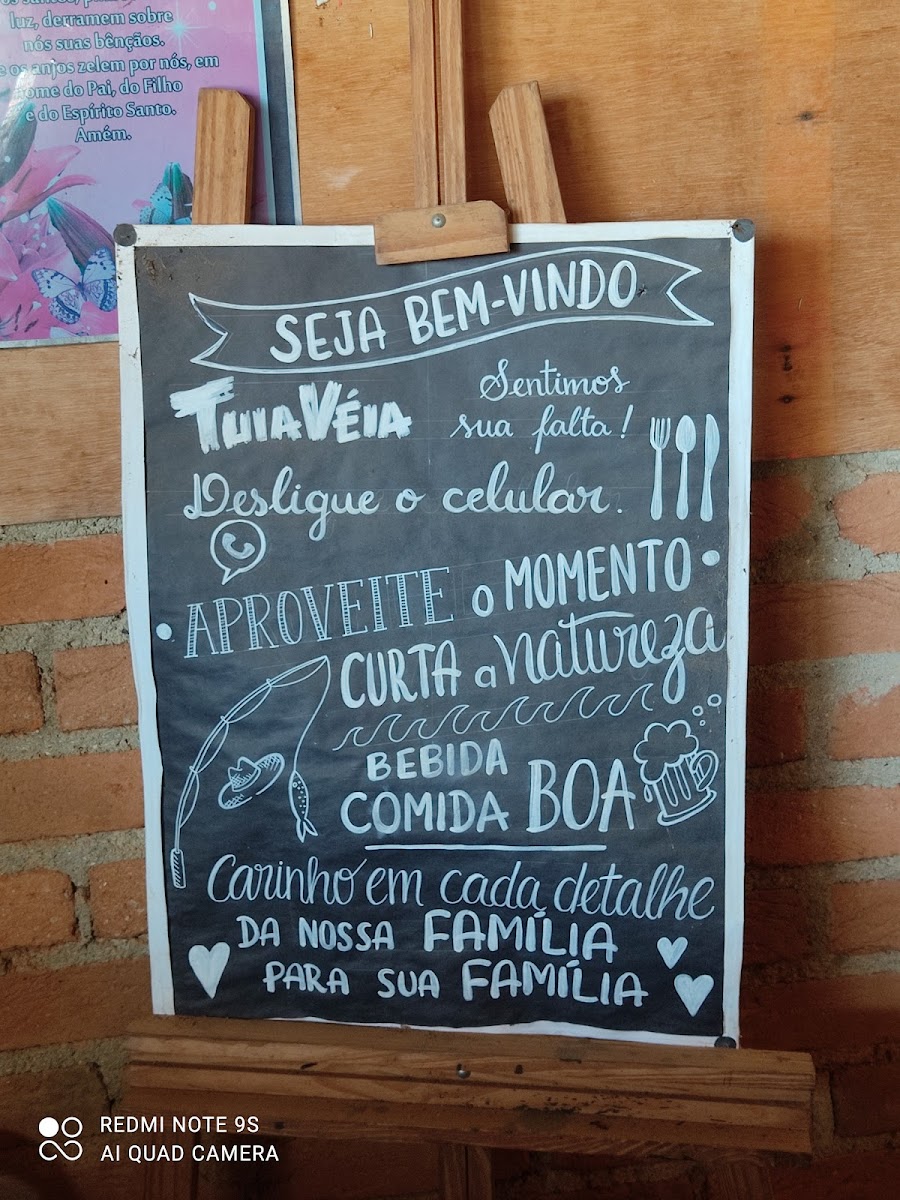 luz, derramem sobre
nós suas bênçãos.
os anjos zelem por nós, em
nome do Pai, do Filho
e do Espírito Santo.
Amém.
SEJA BEM-VINDO
TUIAVÉIA
Sentimos
sua falta!
Desligue o celular.
APROVEITE O MOMENTO
CURTA a natureza
BEBIDA
COMIDA BOA
Carinho em cada detalhe
DA NOSSA FAMÍLIA
PARA SUA FAMÍLIA
REDMI NOTE 9S
AI QUAD CAMERA